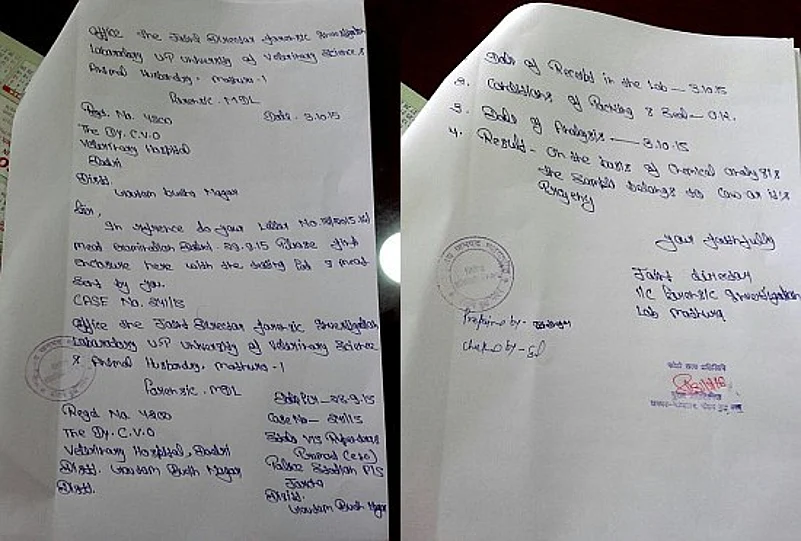 Office the Joint Director forensic Investigation
Laboratory UP University of Veterinary Science &
Animal Husbandry, Mathura-1
Forensic. MDL
Regd. No. 4200 Date. 3.10.15
The Dy. C.V.O
Veterinary Hospital
Dadri
Distt.
Goutam Budha Nagar
Sir,
In reference to your Letter No.
meat examination Dadri. 29.9.15 Please find
enclosure here with the testing of meat
sent by you.
CASE No. 241/15
Office the Joint Director forensic Investigation
Laboratory UP University of Veterinary Science
& Animal Husbandry, Mathura-1
Forensic. MDL
Regd No. 4200
The Dy. C.V.O
Veterinary Hospital, Dadri
Distt. Goutam Budh Nagar
Distt.
Case No— 241/15
State V/S
Police Station P/S
Jarcha
Distt.
Goutam Budh Nagar
Date of Record in the Lab — 3.10.15
2. Conditions of Packing & Seal — O.K.
3. Date of Analysis —— 3.10.15
4. Result - On the basis of Chemical analysis
the Sample belongs to Cow or its
Progeny
your faithfully
Joint director
I/C Forensic Investigation
Lab Mathura
Prepare by -
Checked by -